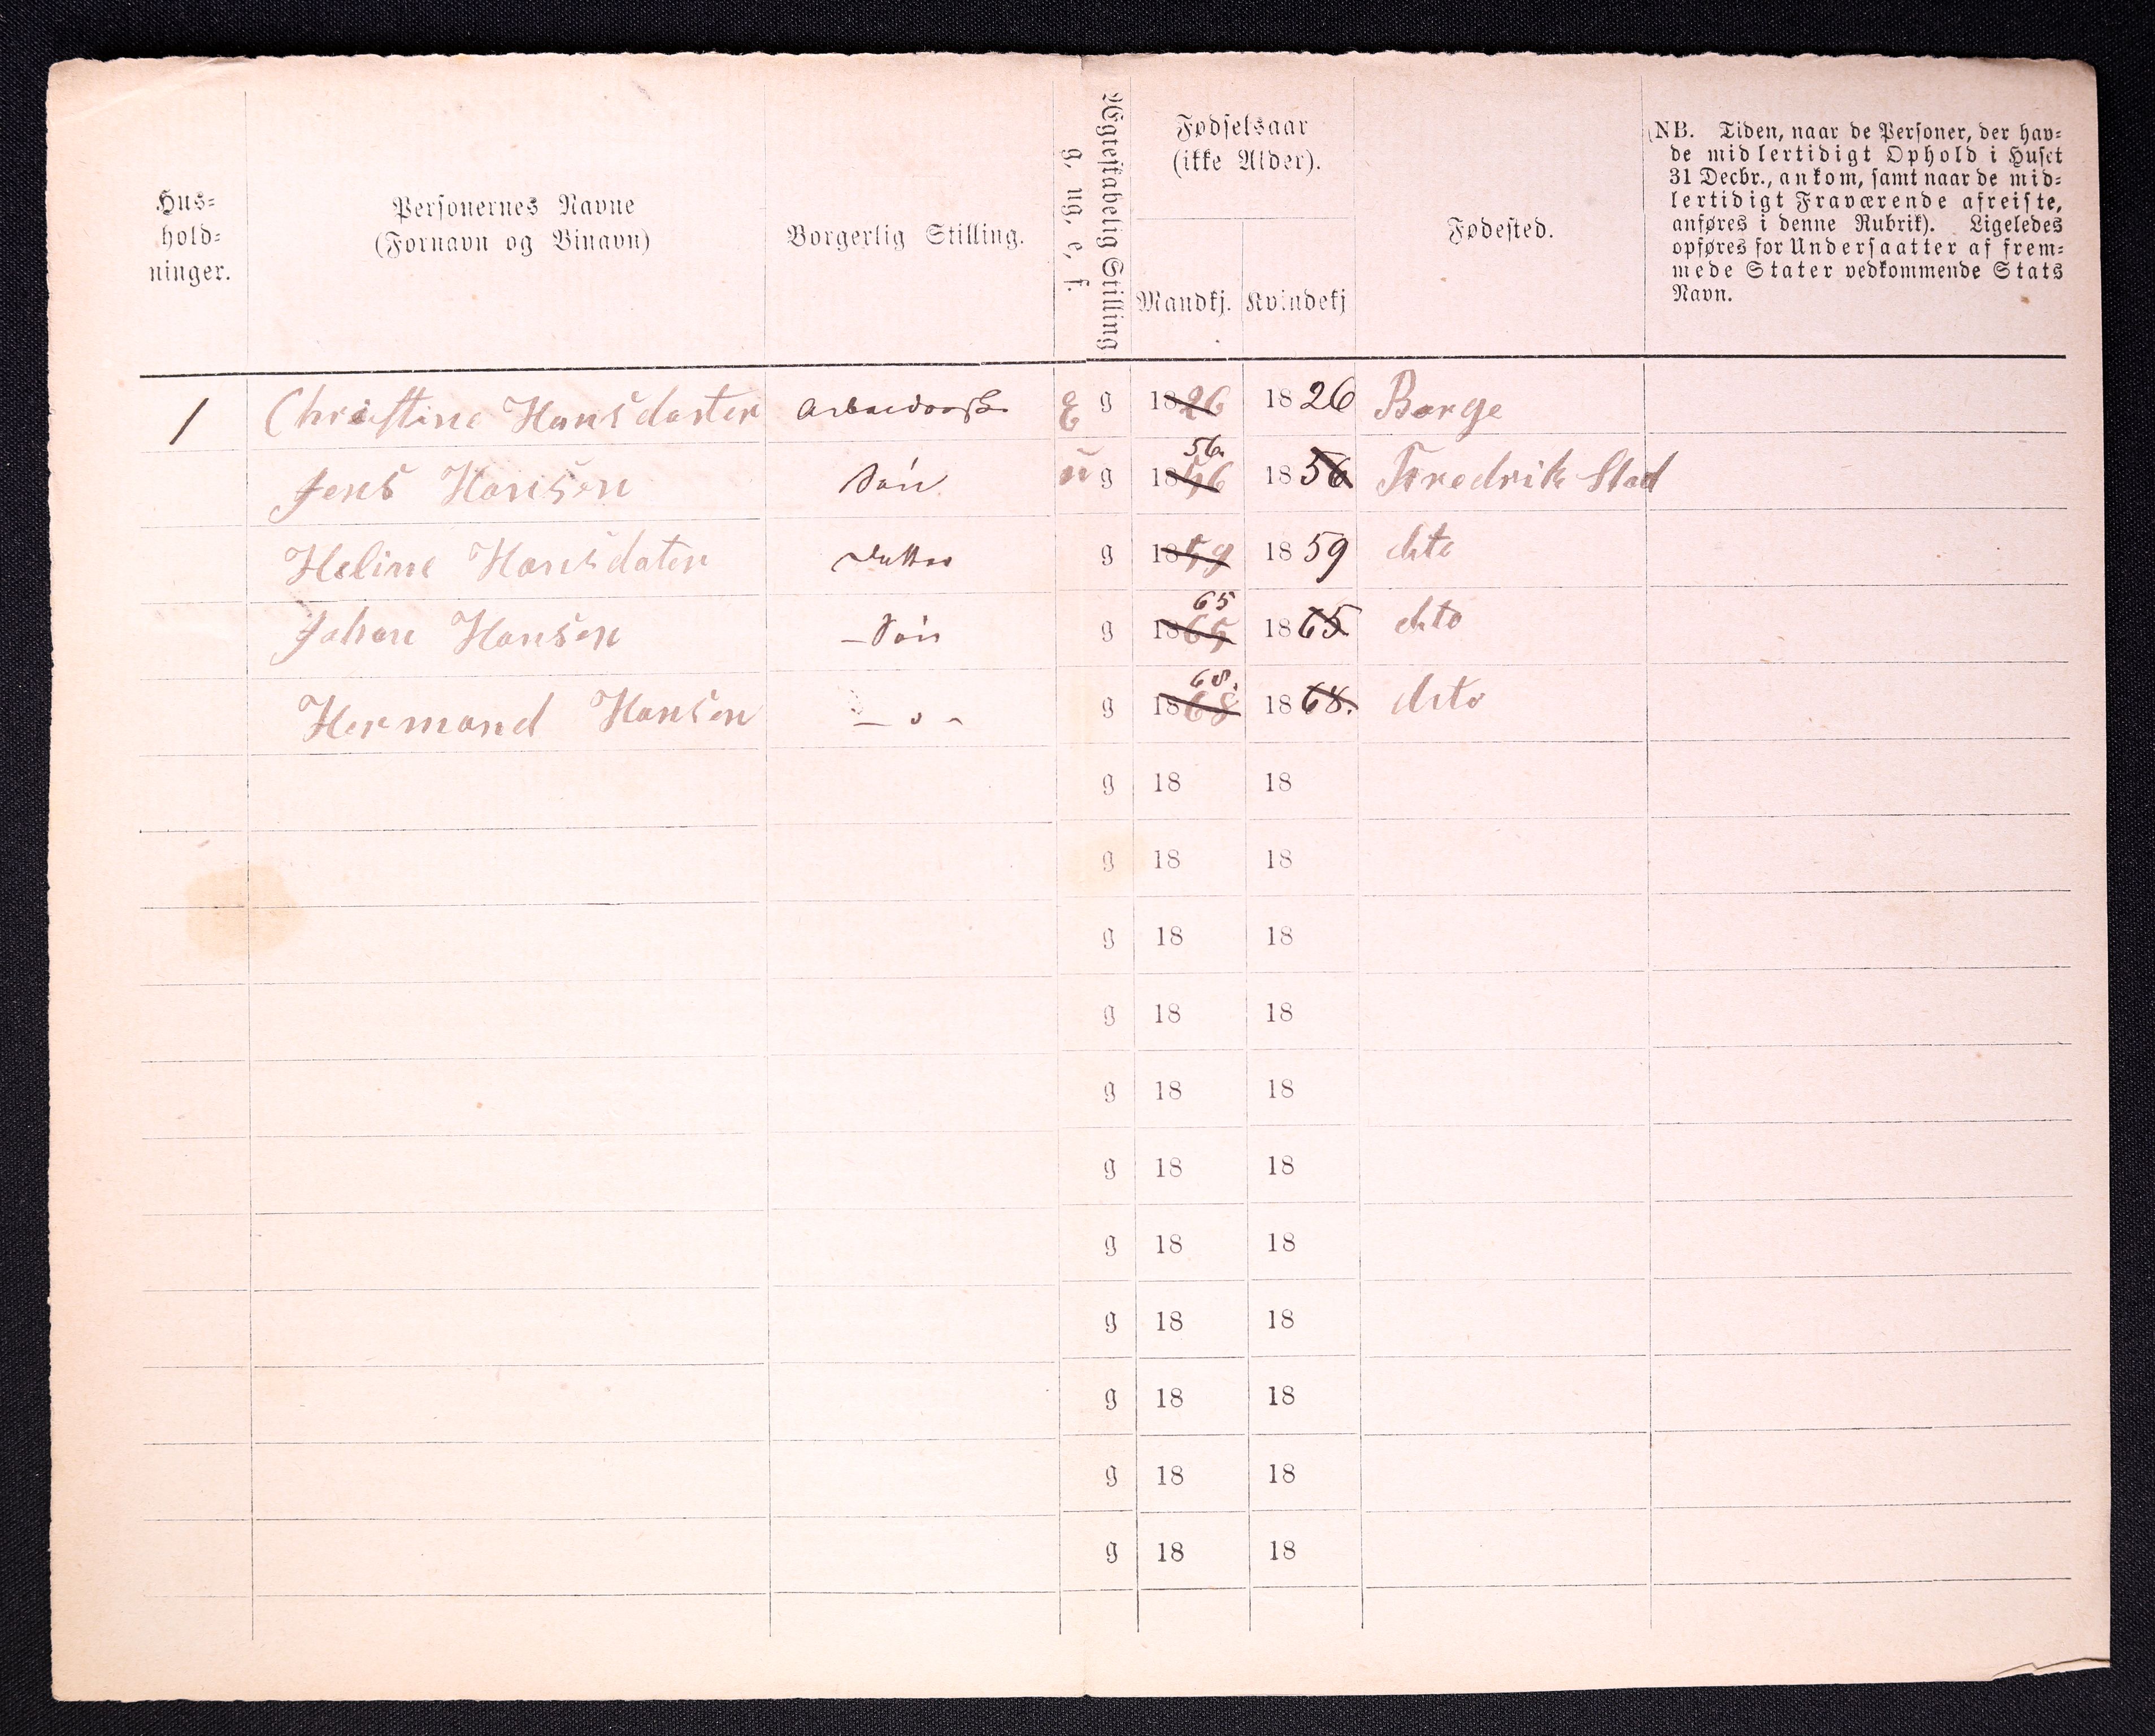 Hus-
hold-
ninger.
Personernes Navne
(Fornavn og Binavn)
Borgerlig Stilling.
Ægteskabelig Stilling
g, ug, e, f.
Fødselsaar
(ikke Alder).
Mandkj. Kvindekj
Fødested.
(NB. Tiden, naar de Personer, der hav-
de midlertidigt Ophold i Huset
31 Decbr., ankom, samt naar de mid-
lertidigt Fraværende afreiste,
anføres i denne Rubrik). Ligeledes
opføres for Undersaatter af frem-
mede Stater vedkommende Stats
Navn.
1 Christine Hansdatter E g 1826 1826 Borge
56.
Jens Hansen Søn u g 1856 1856 Fredrik Stad
Heline Hansdater Datter g 1859 1859 dito
65
Johan Hansen – Søn g 1865 1865 dito
68.
Hermand Hansen – o – g 1868 1868. dito
g 18 18
g 18 18
g 18 18
g 18 18
g 18 18
g 18 18
g 18 18
g 18 18
g 18 18
g 18 18
g 18 18